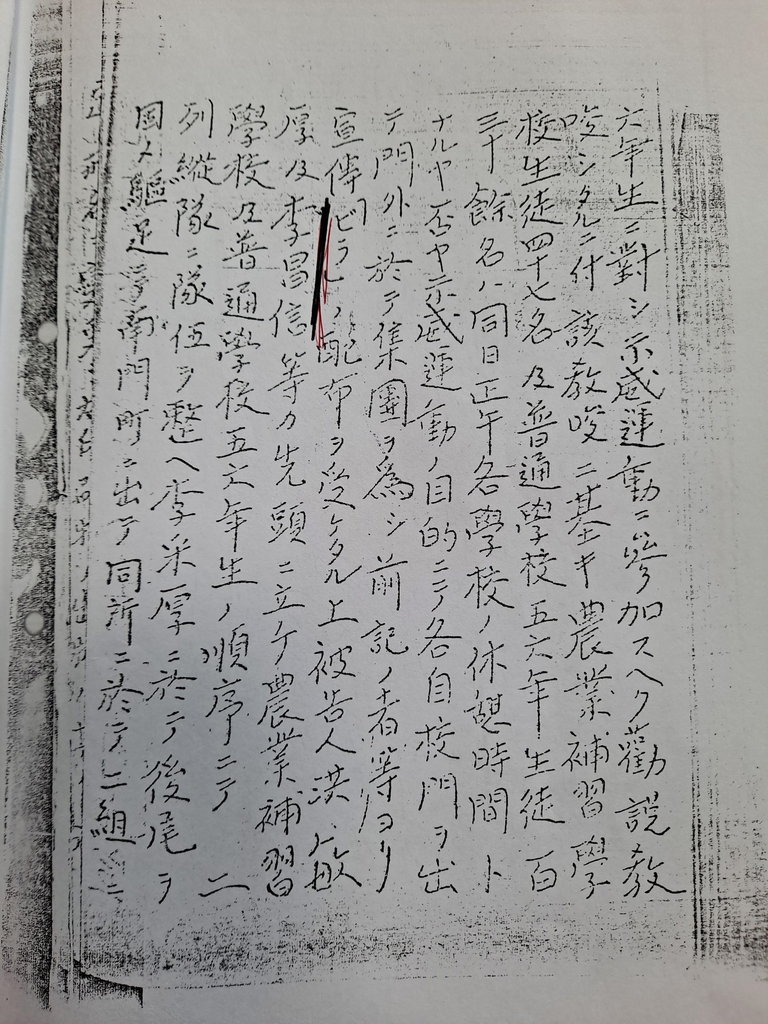 六年生ニ對シ示威運動ニ參加スヘク勸説教
唆シタルニ付該教唆ニ基キ農業補習學
校生徒四十七名及普通學校五六年生徒百
三十餘名ハ同日正午各學校ノ休憩時間ト
ナルヤ否ヤ示威運動ノ目的ニテ各自校門ヲ出
テ門外ニ於テ集團ヲ爲シ前記ノ者等ヨリ
宣傳ビラノ配布ヲ受ケタル上被告人洪敏
厚及李昌信等カ先頭ニ立ケ農業補習
學校及普通學校五六年生ノ順序ニテ二
列縱隊ニ隊伍ヲ整ヘ李采厚ニ於テ後尾ヲ
固メ驅足ニ南門町ニ出テ同所ニ於テ二組ニ